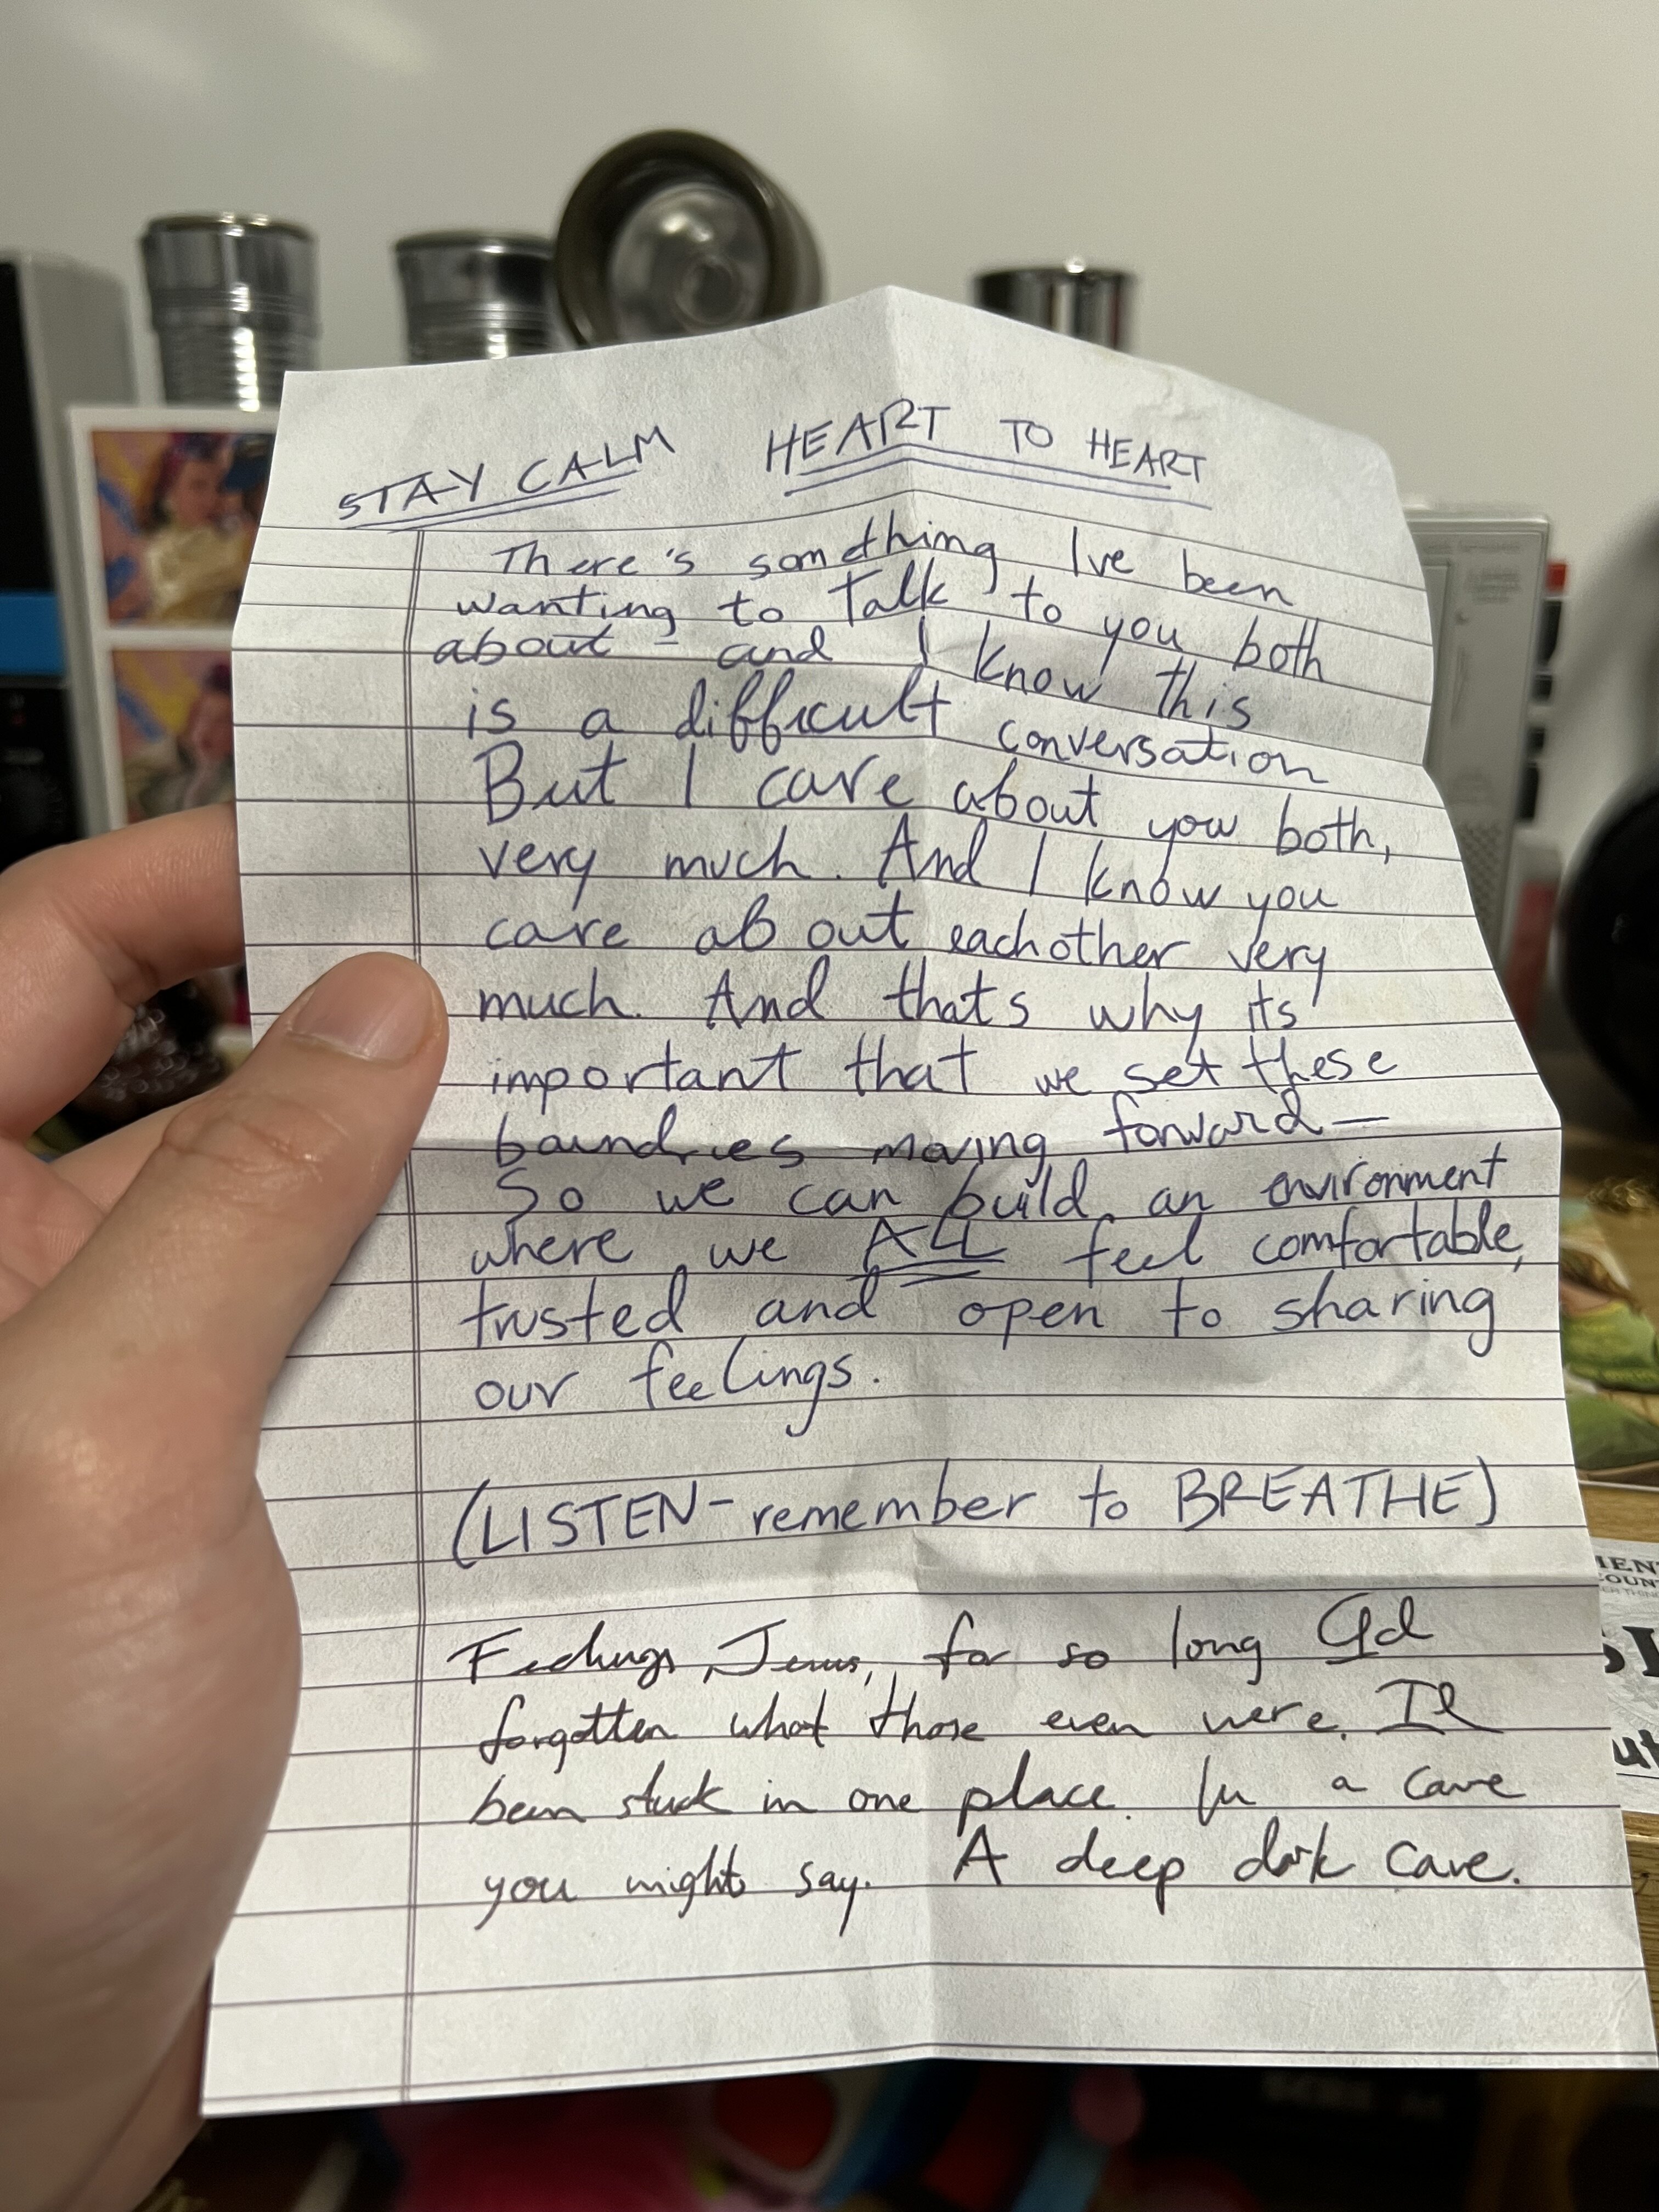 STAY CALM HEART TO HEART
There's somdthing Ive been
wanting to Talk to you both
about - and I know this
is a difficult conversation
But I care about you both,
very much. And I know you
care about eachother very
much. And thats why its
important that we set these
boundries moving forward —
So we can build an environment
where we ALL feel comfortable,
trusted and open to sharing
our feelings.
(LISTEN - remember to BREATHE)
Feelings, Jesus, for so long Id
forgotten what those even were.
been stuck in one place. In a cave
you might say. A deep dark cave.